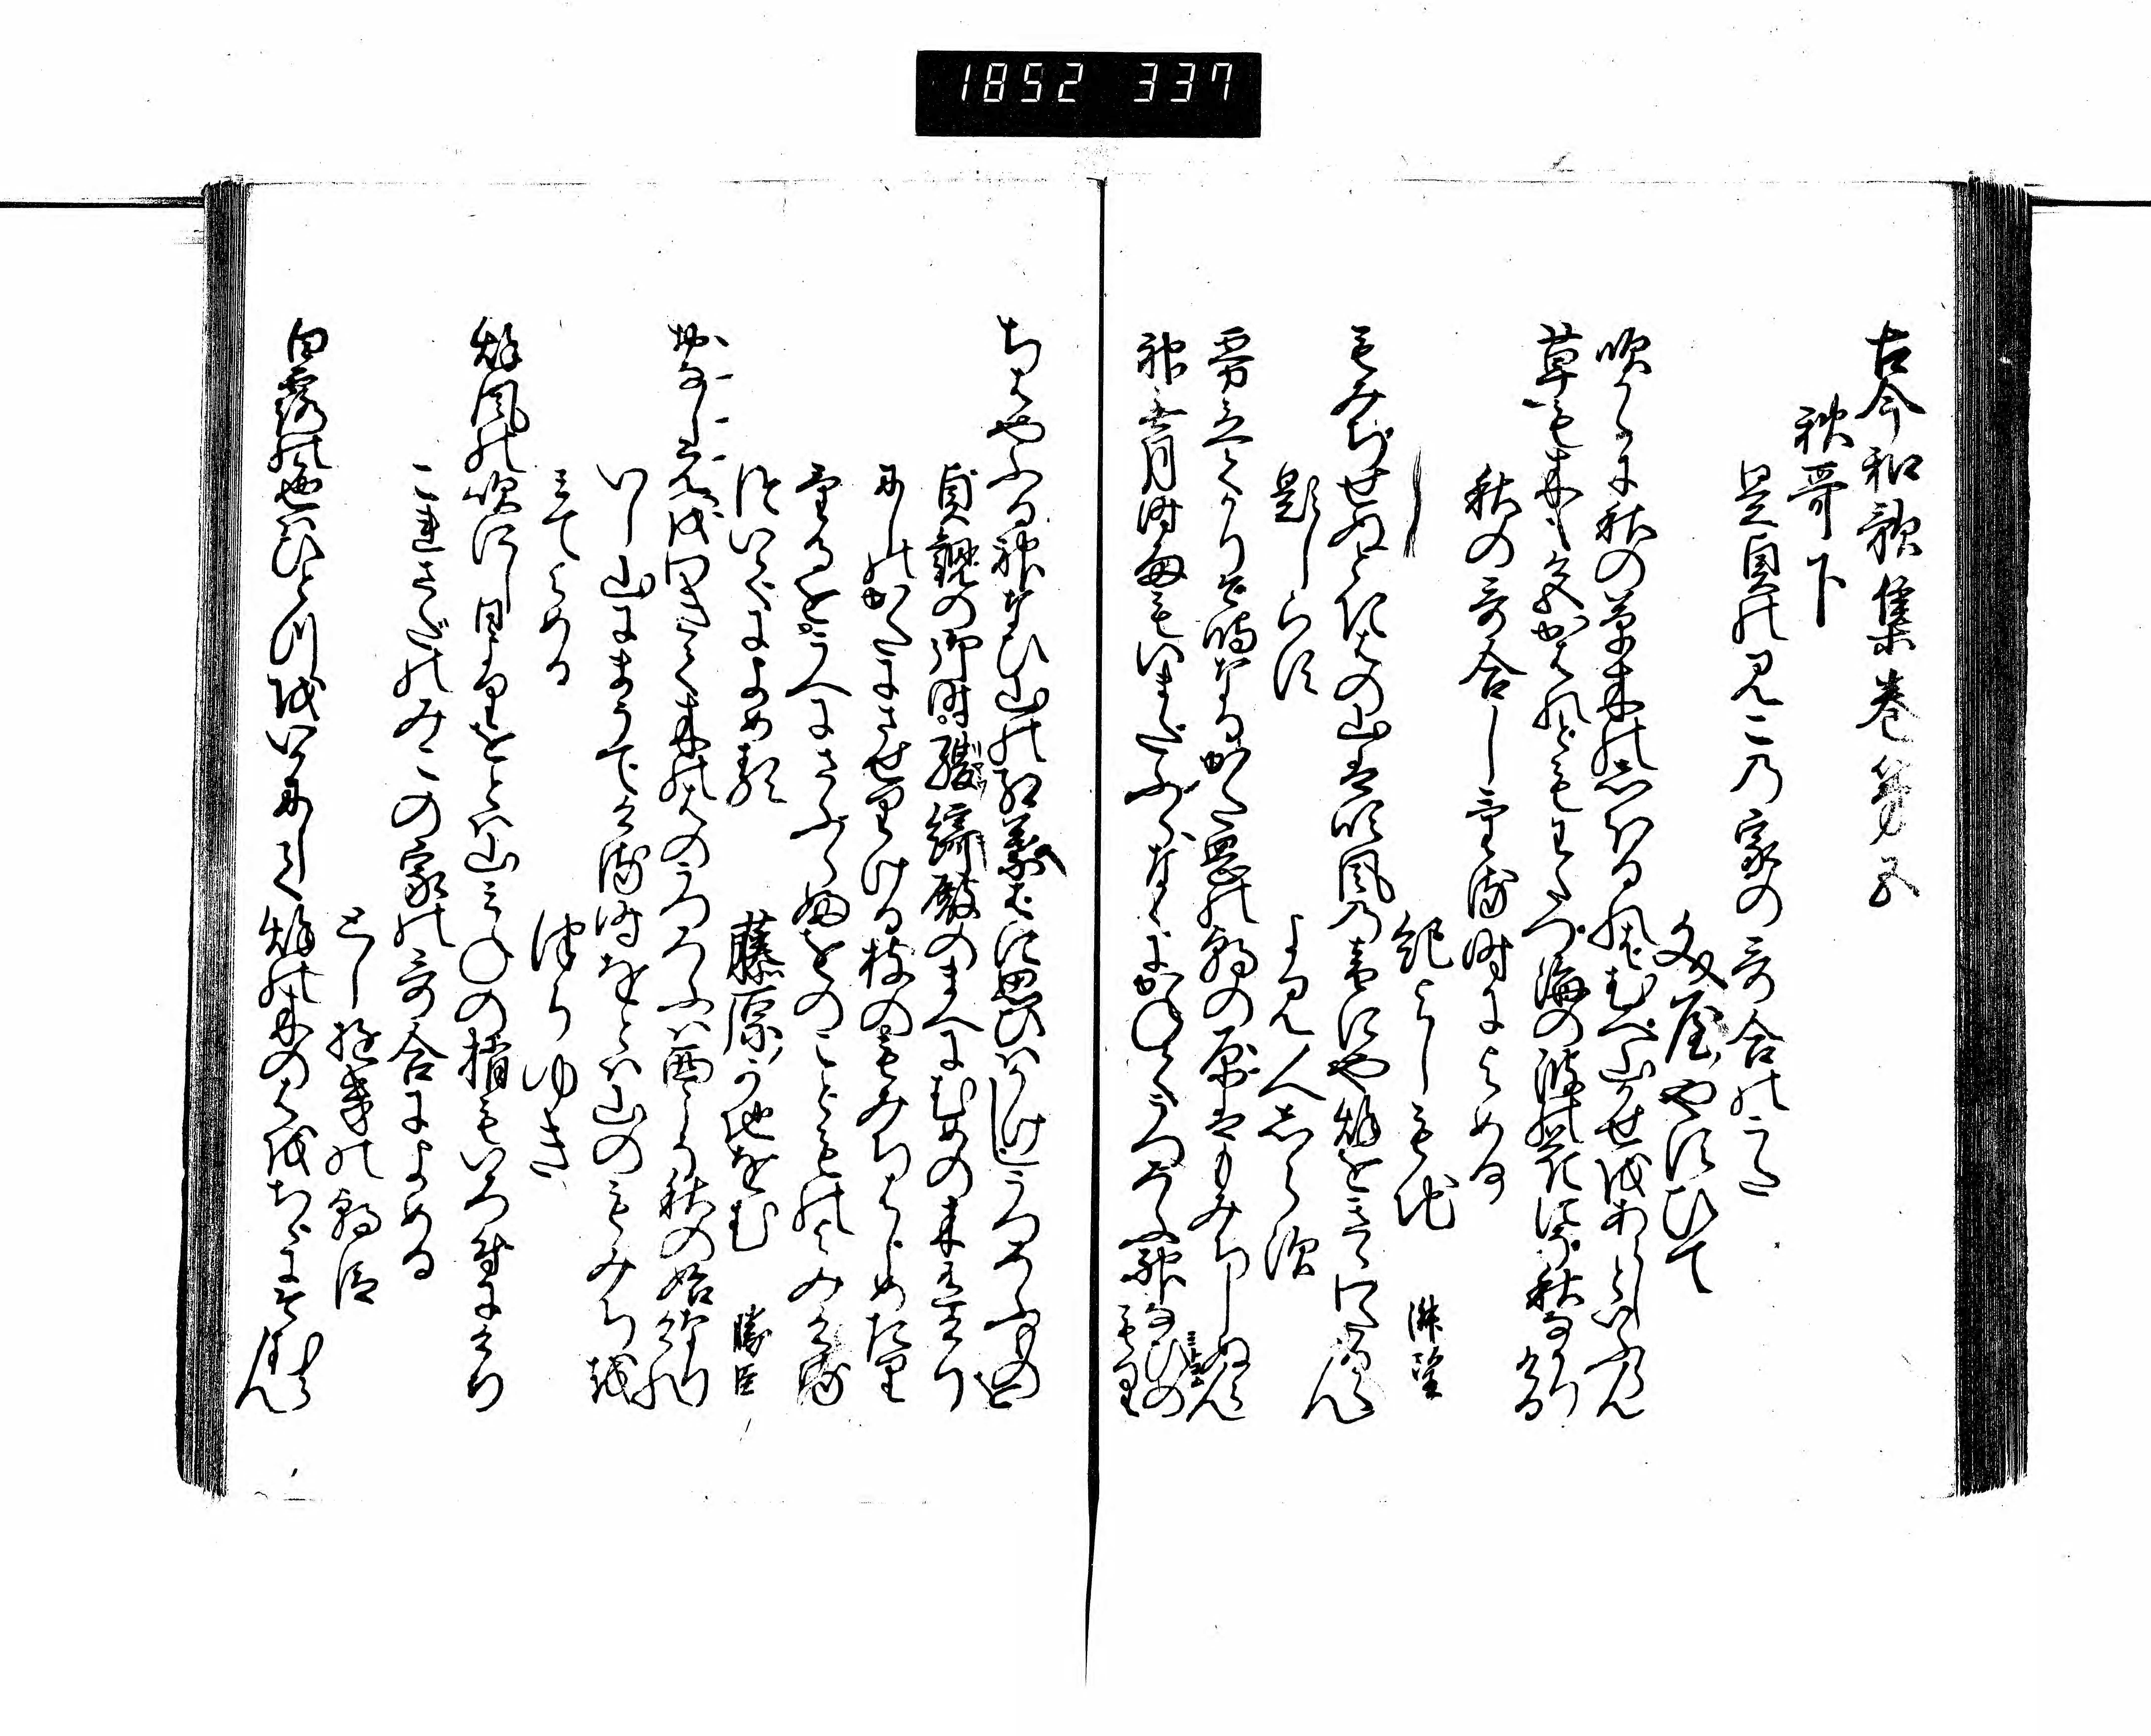 1852 337
古今和歌集巻第五
秋哥下
是貞のみこの家の哥合のうた
文屋やすひて
吹からに秋の草木のしほるれはむへ山かせをあらしといふらん
草も木も色かはれともわたつ海の波の花にそ秋なかりける
秋の哥合し ける時によめる
紀よしもち 淑望
もみちせぬときはの山は吹風の音にや秋をきゝわたるらん
題しらす よみ人しらす
霧立てかりそ鳴なるかた岡の朝の原はもみちしぬらん
神な月時雨もいまたふらなくにかねてうつろふ神なひのもり
ちはやふる神なひ山の紅葉はに思ひはかけしうつろふものを
貞観の御時綾綺殿のまへにむめの木有けり
にしのかたにさせりける枝のもみちはしめたり
けるをうへにさふらふをのこともの よみける
つゐてによめる 藤原かちをむ 勝臣
おなしえをわきて木のはのうつろふは西こそ秋の始なりけれ
いし山にまうてける時をとは山のもみちを
みてよめる つらゆき
秋風の吹にし日よりをとは山みねの梢もいろ付にけり
これさたのみこの家の哥合によめる
としゆきの朝臣
白露の色はひとつをいかにして秋の木のはをちゝにそむらん